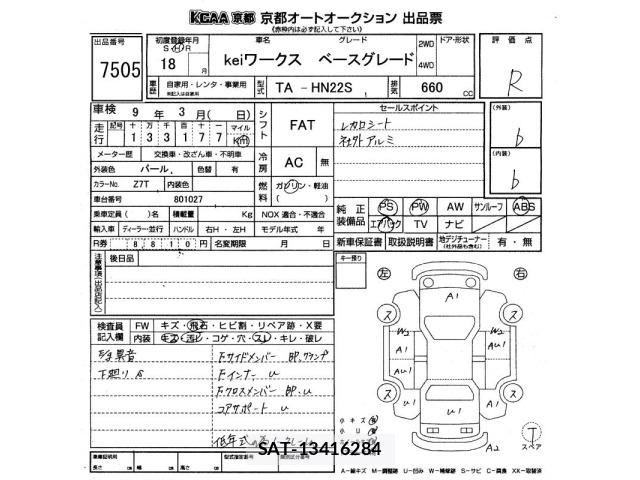 KCAA 京都 京都オートオークション 出品票
(赤枠内は必ず記入して下さい)
出品番号
7505
初度登録年月
S H R
18 月
車名 グレード
keiワークス ベースグレード
2WD
4WD
ドア・形状
評価点
R
車歴
自家用・レンタ・事業用
型式
TA - HN22S
排気
660 cc
車検 9年 3月 ( 日)
走行
記号 十 万 千 百 十 一 マイル
1 3 3 1 7 7 Km
シフト
FAT
メーター歴 交換車・改ざん車・不明車
冷房
AC 無
外装色 パール 色替 有
カラーNo Z7T 内装色
燃料
ガソリン・軽油
車台番号 801027
乗車定員 ( )名 積載量 Kg NOX 適合・不適合
輸入車 ディーラー・並行 ハンドル 右H・左H モデル年式 年
R券 8810円 名変期限 月 日
セールスポイント
レカロシート
社外アルミ
(外装)
b
(内装)
b
純正装備品
PS PW AW サンルーフ ABS
エアバック TV ナビ
新車保証書 取扱説明書 地デジチューナー (社外品も含む) 有・無
注意事項(出品店記入)
後日品
キー預り
左 右
検査員記入欄
FW キズ・飛石・ヒビ割・リペア跡・X要
内装 キズ・汚レ・コゲ・穴・スレ・キレ・破レ
異音
下廻りS
Fサイドメンバー BP,クランプ
Fインナー U
Fクロスメンバー BP.U
コアサポート U
低年式
A1
W2 W2
A1 AU1
A1 U1
U1
A1
A2
ス ス
ス ス
小キズ
小U
スペア
SAT-13416284
車庫証明用
長さ cm 幅 cm 高さ cm
型式指定番号
類別区分番号
A－線キズ M－調整跡 U－凹み W－補修跡 S－サビ C－腐食 XX－取替済